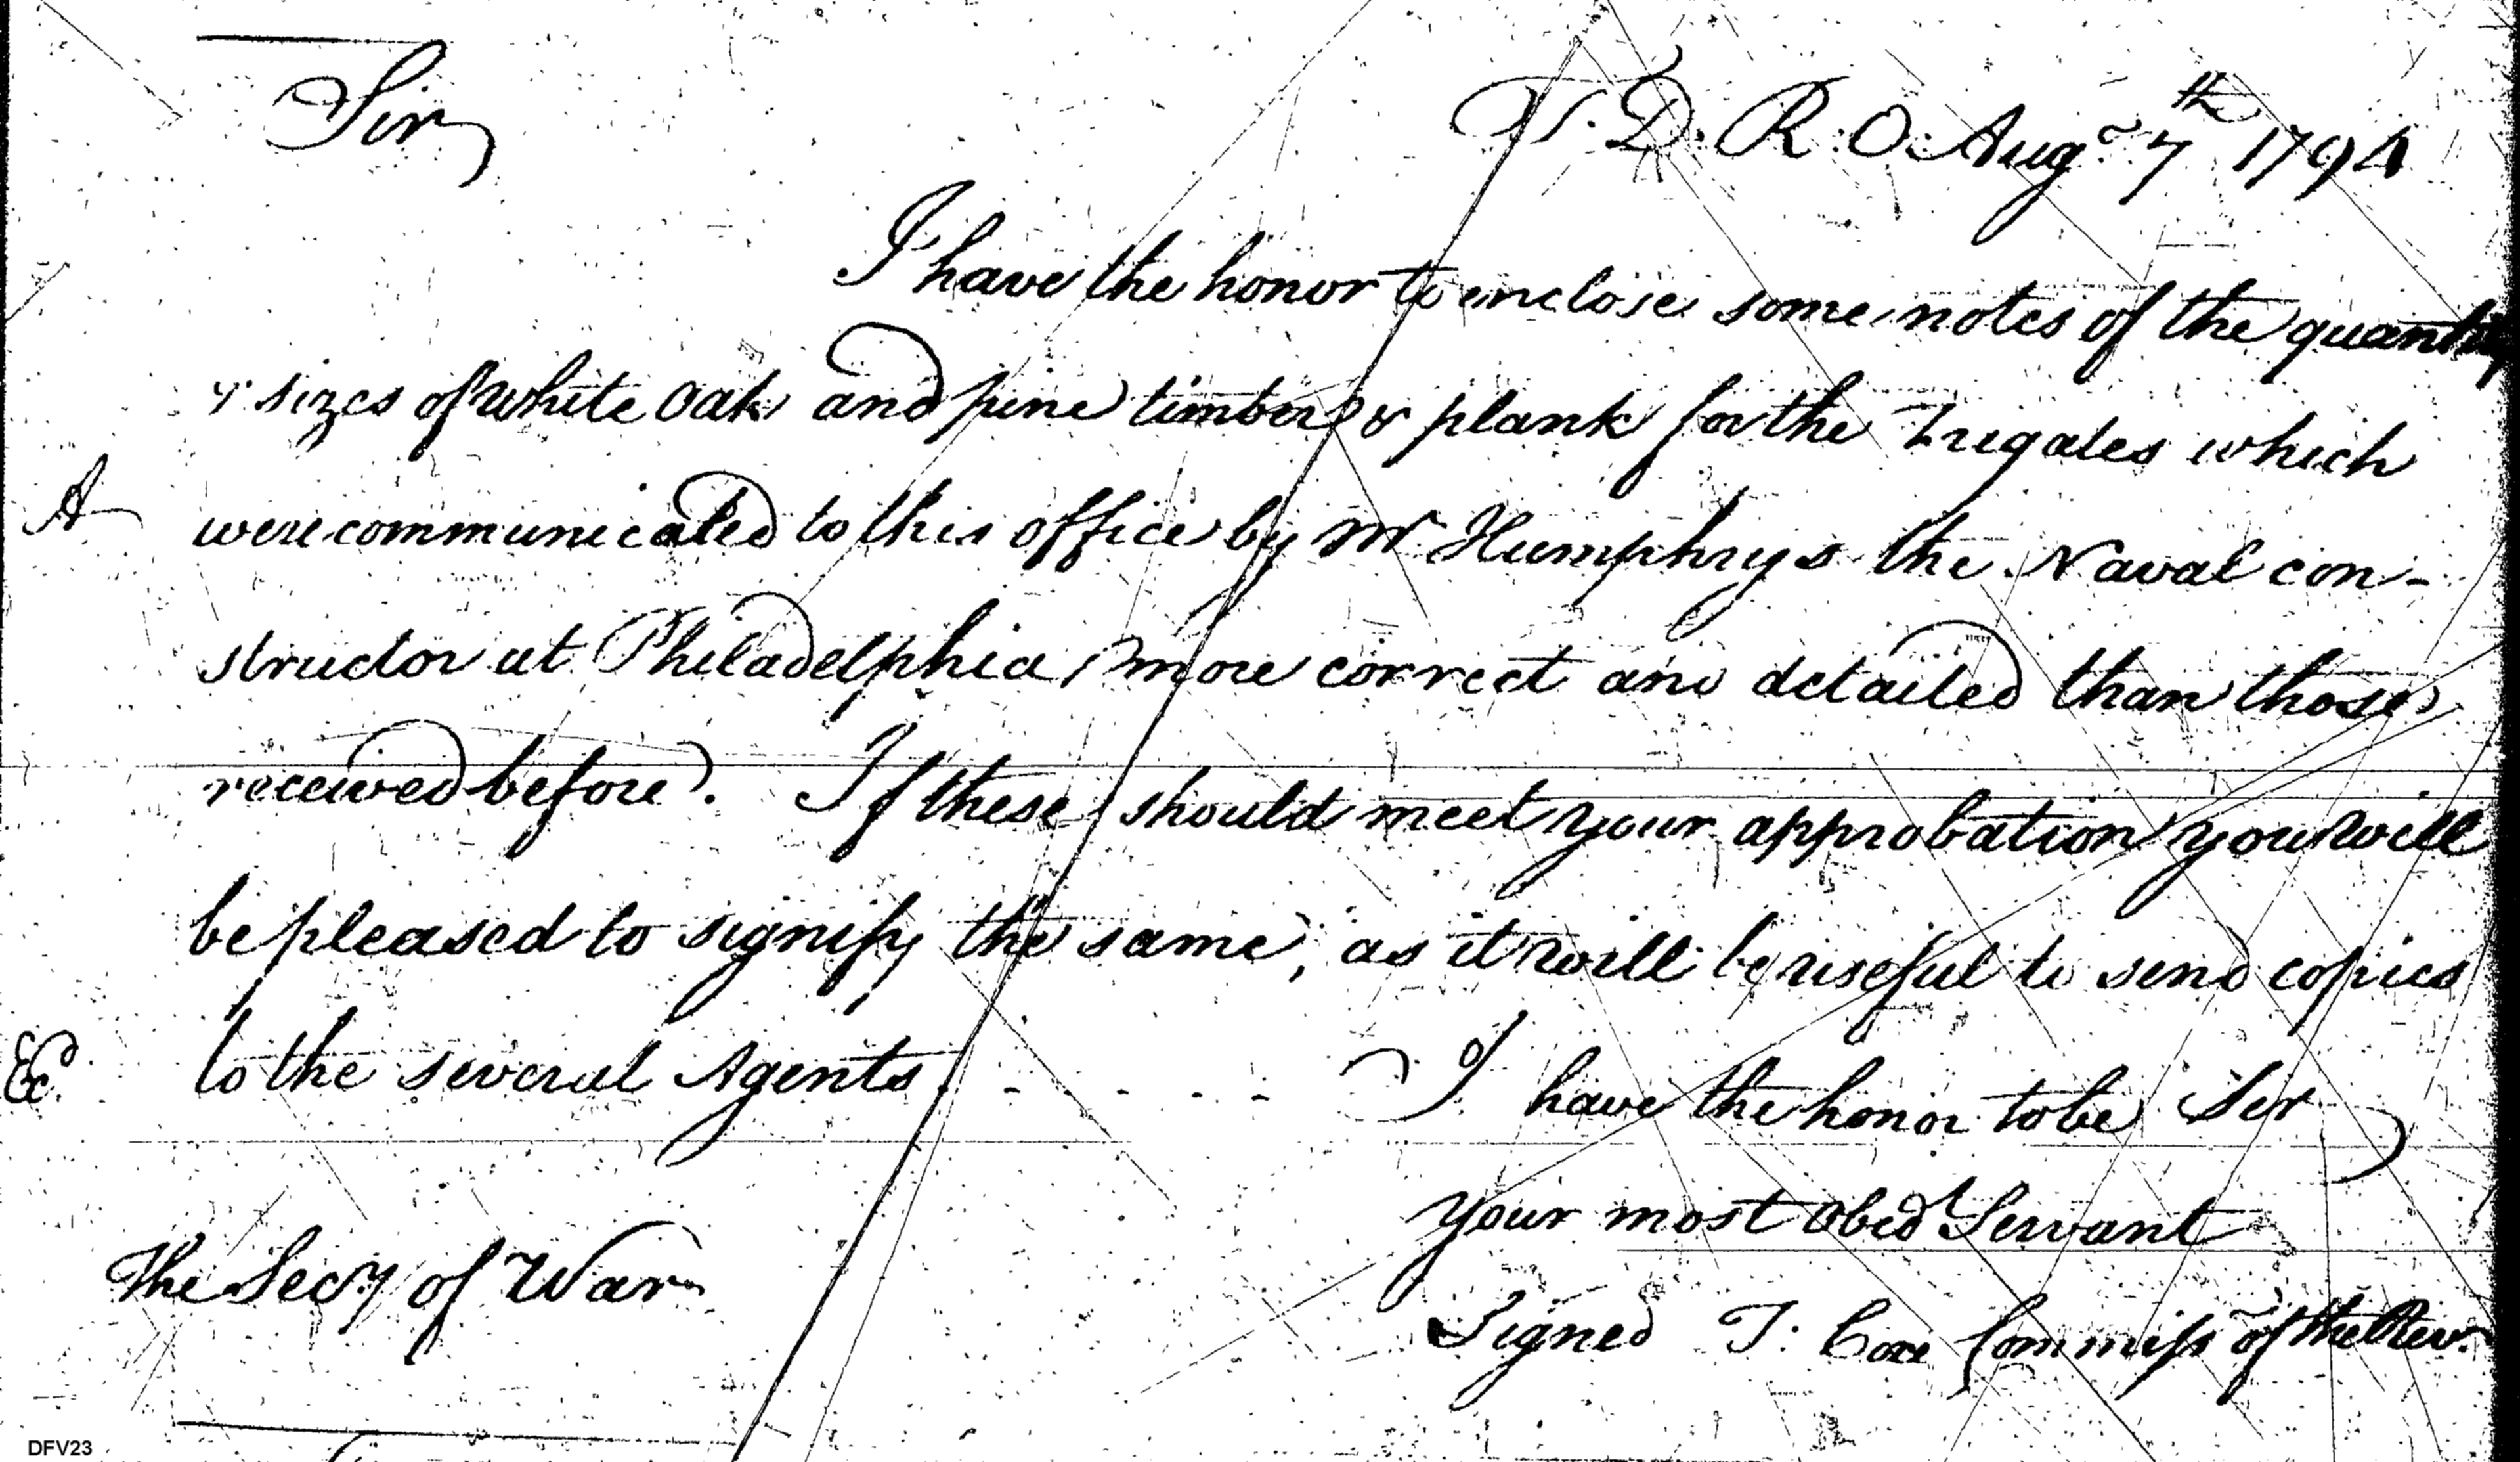 Sir
T. D. R. O. Augt 7th 1794
I have the honor to enclose some notes of the quantity
& sizes of white Oak and pine timber & plank for the Frigates which
A were communicated to this office by Mr Humphrys the Naval con-
structor at Philadelphia, more correct and detailed than those
received before. If these should meet your approbation you will
be pleased to signify the same, as it will be useful to send copies
to the several Agents. - - - I have the honor to be Sir
your most obed Servant
The Secy of War
Signed T. Coxe Commissr of the Rev.
DFV23